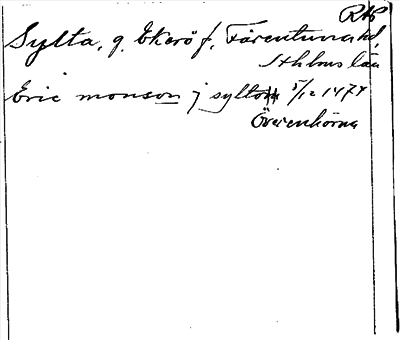 RAP
Sylta, g. Ekerö f, Färentuna hd,
Sthlms län
Eric monson j sylto 5/12 1477
Överenhörna